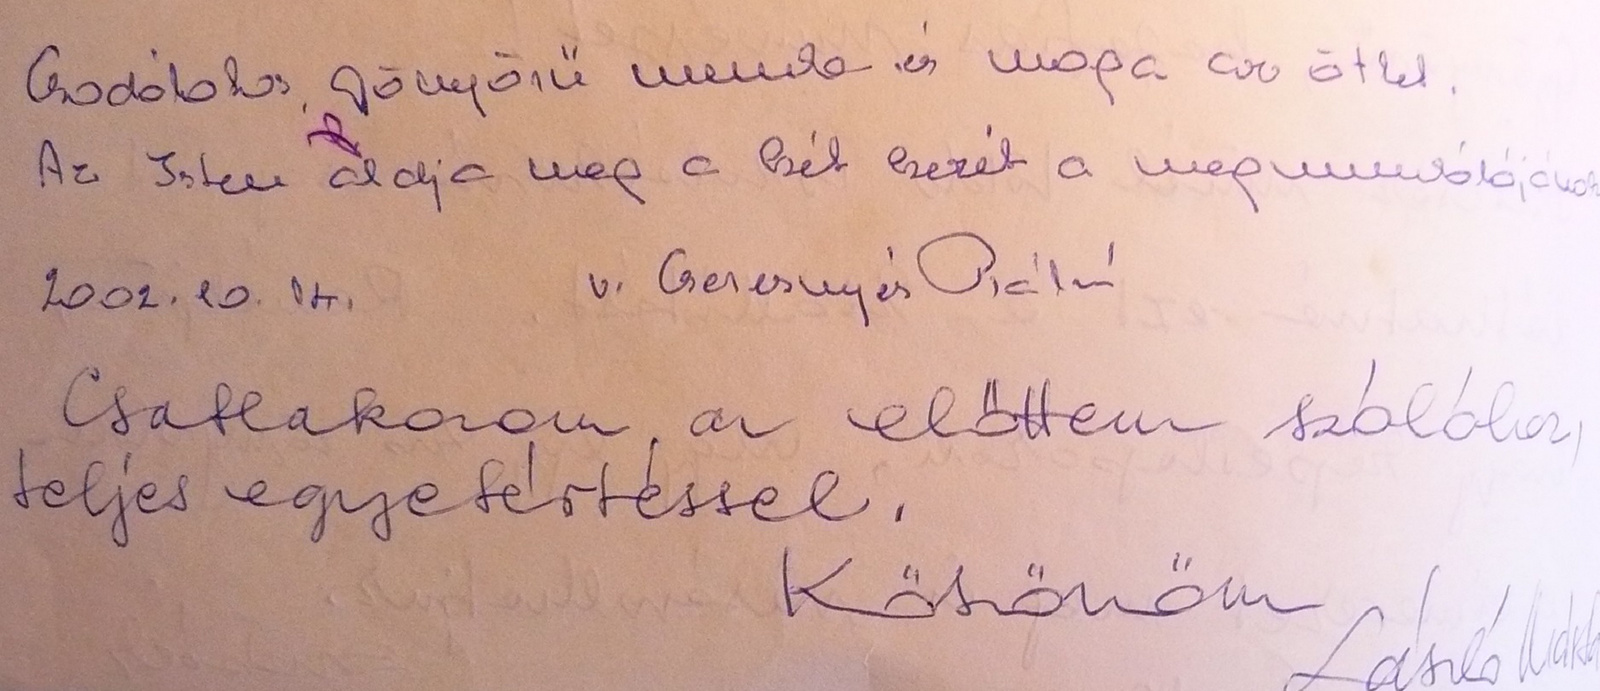 Csodálatos, gönyörű munka és maga az ötlet.
Az Isten áldja meg a két kezét a megmunkálójának
2002. 10. 14. v. Cseresnyés Pálné
Csatlakozom, az előttem szólóhoz,
teljes egyetértéssel.
Köszönöm
László